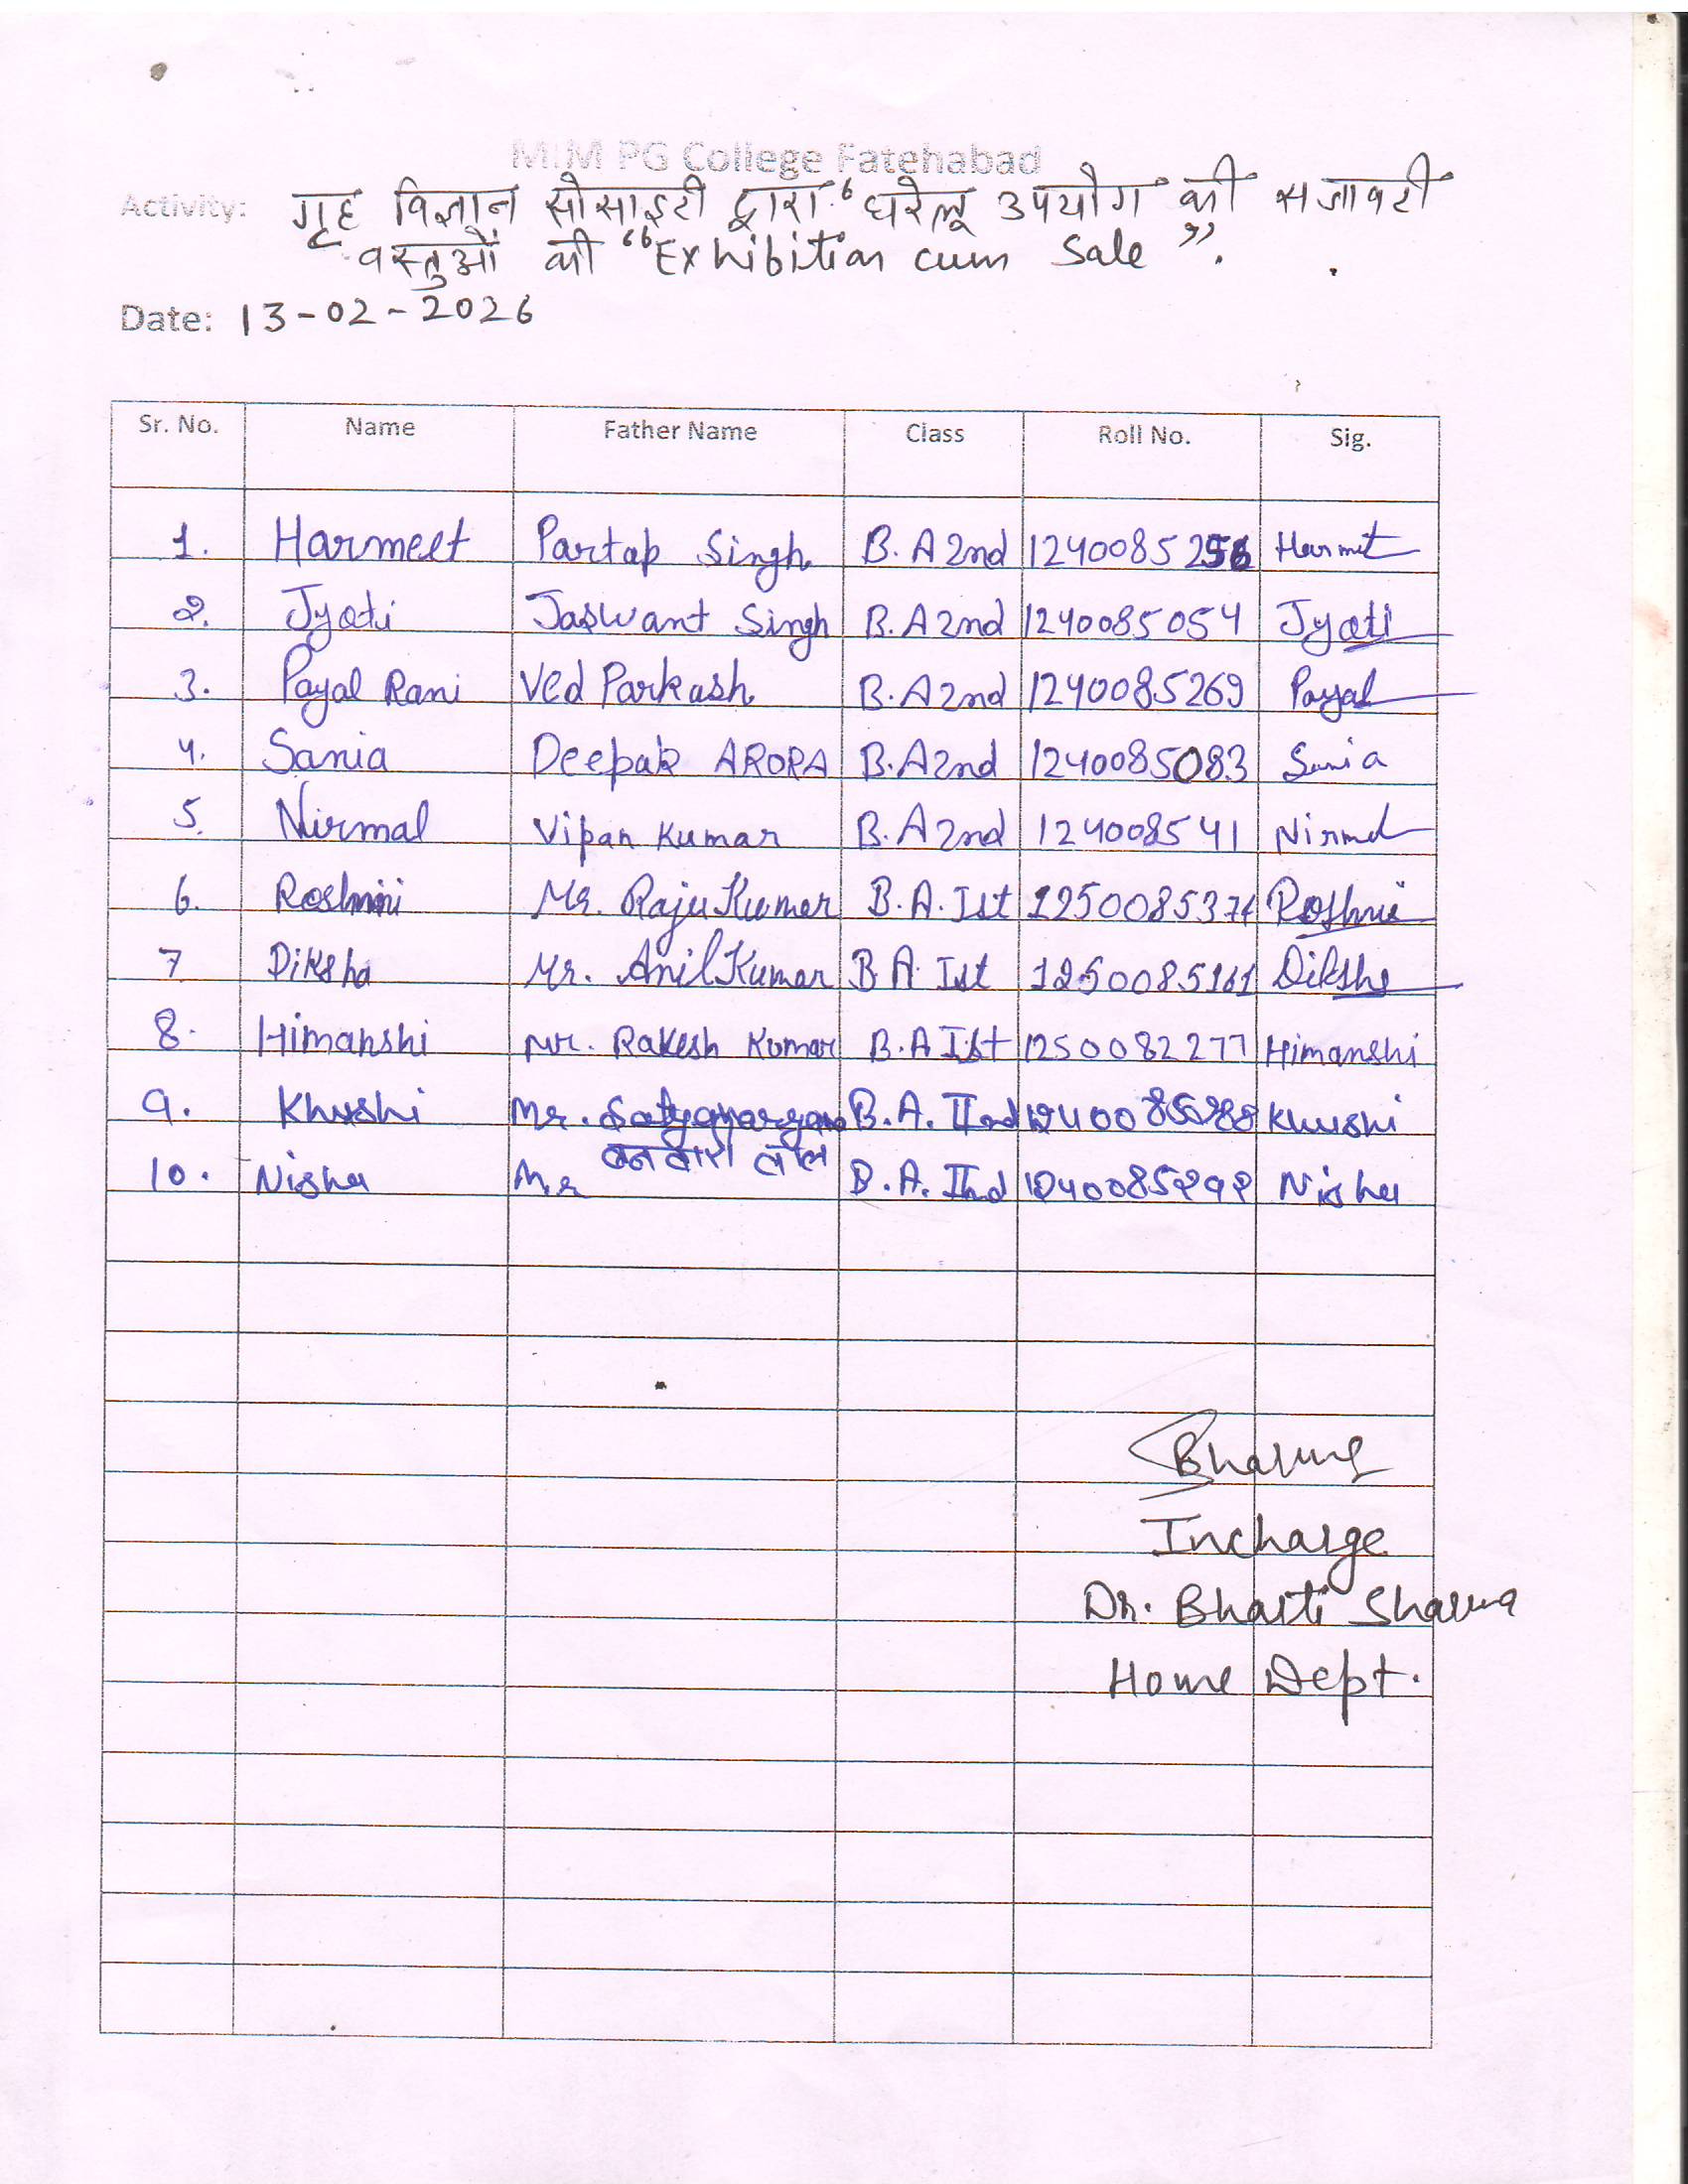 M.M PG College Fatehabad
Activity: गृह विज्ञान सोसाइटी द्वारा "घरेलू उपयोग की सजावटी
वस्तुओं की "Exhibition cum Sale".
Date: 13-02-2026
Sr. No. Name Father Name Class Roll No. Sig.
1. Harmeet Partap Singh B.A 2nd 1240085256 Harmit
2. Jyoti Jaswant Singh B.A 2nd 1240085054 Jyoti
3. Payal Rani Ved Parkash B.A 2nd 1240085269 Payal
4. Sania Deepak ARORA B.A 2nd 1240085083 Sania
5. Nirmal Vipan Kumar B.A 2nd 124008541 Nirmal
6. Roshni Mr. Raju Kumar B.A. Ist Roshni
7 Diksha Mr. Anil Kumar B A Ist 1250085161 Diksha
8. Himanshi Mr. Rakesh Kumar B.A Ist 1250082277 Himanshi
9. Khushi Mr. Satyanarayan B.A. IInd Khushi
10. Nisha Mr बनवारी लाल B.A. IInd 1240085292 Nisha
Incharge
Dr. Bharti Sharma
Home Dept.